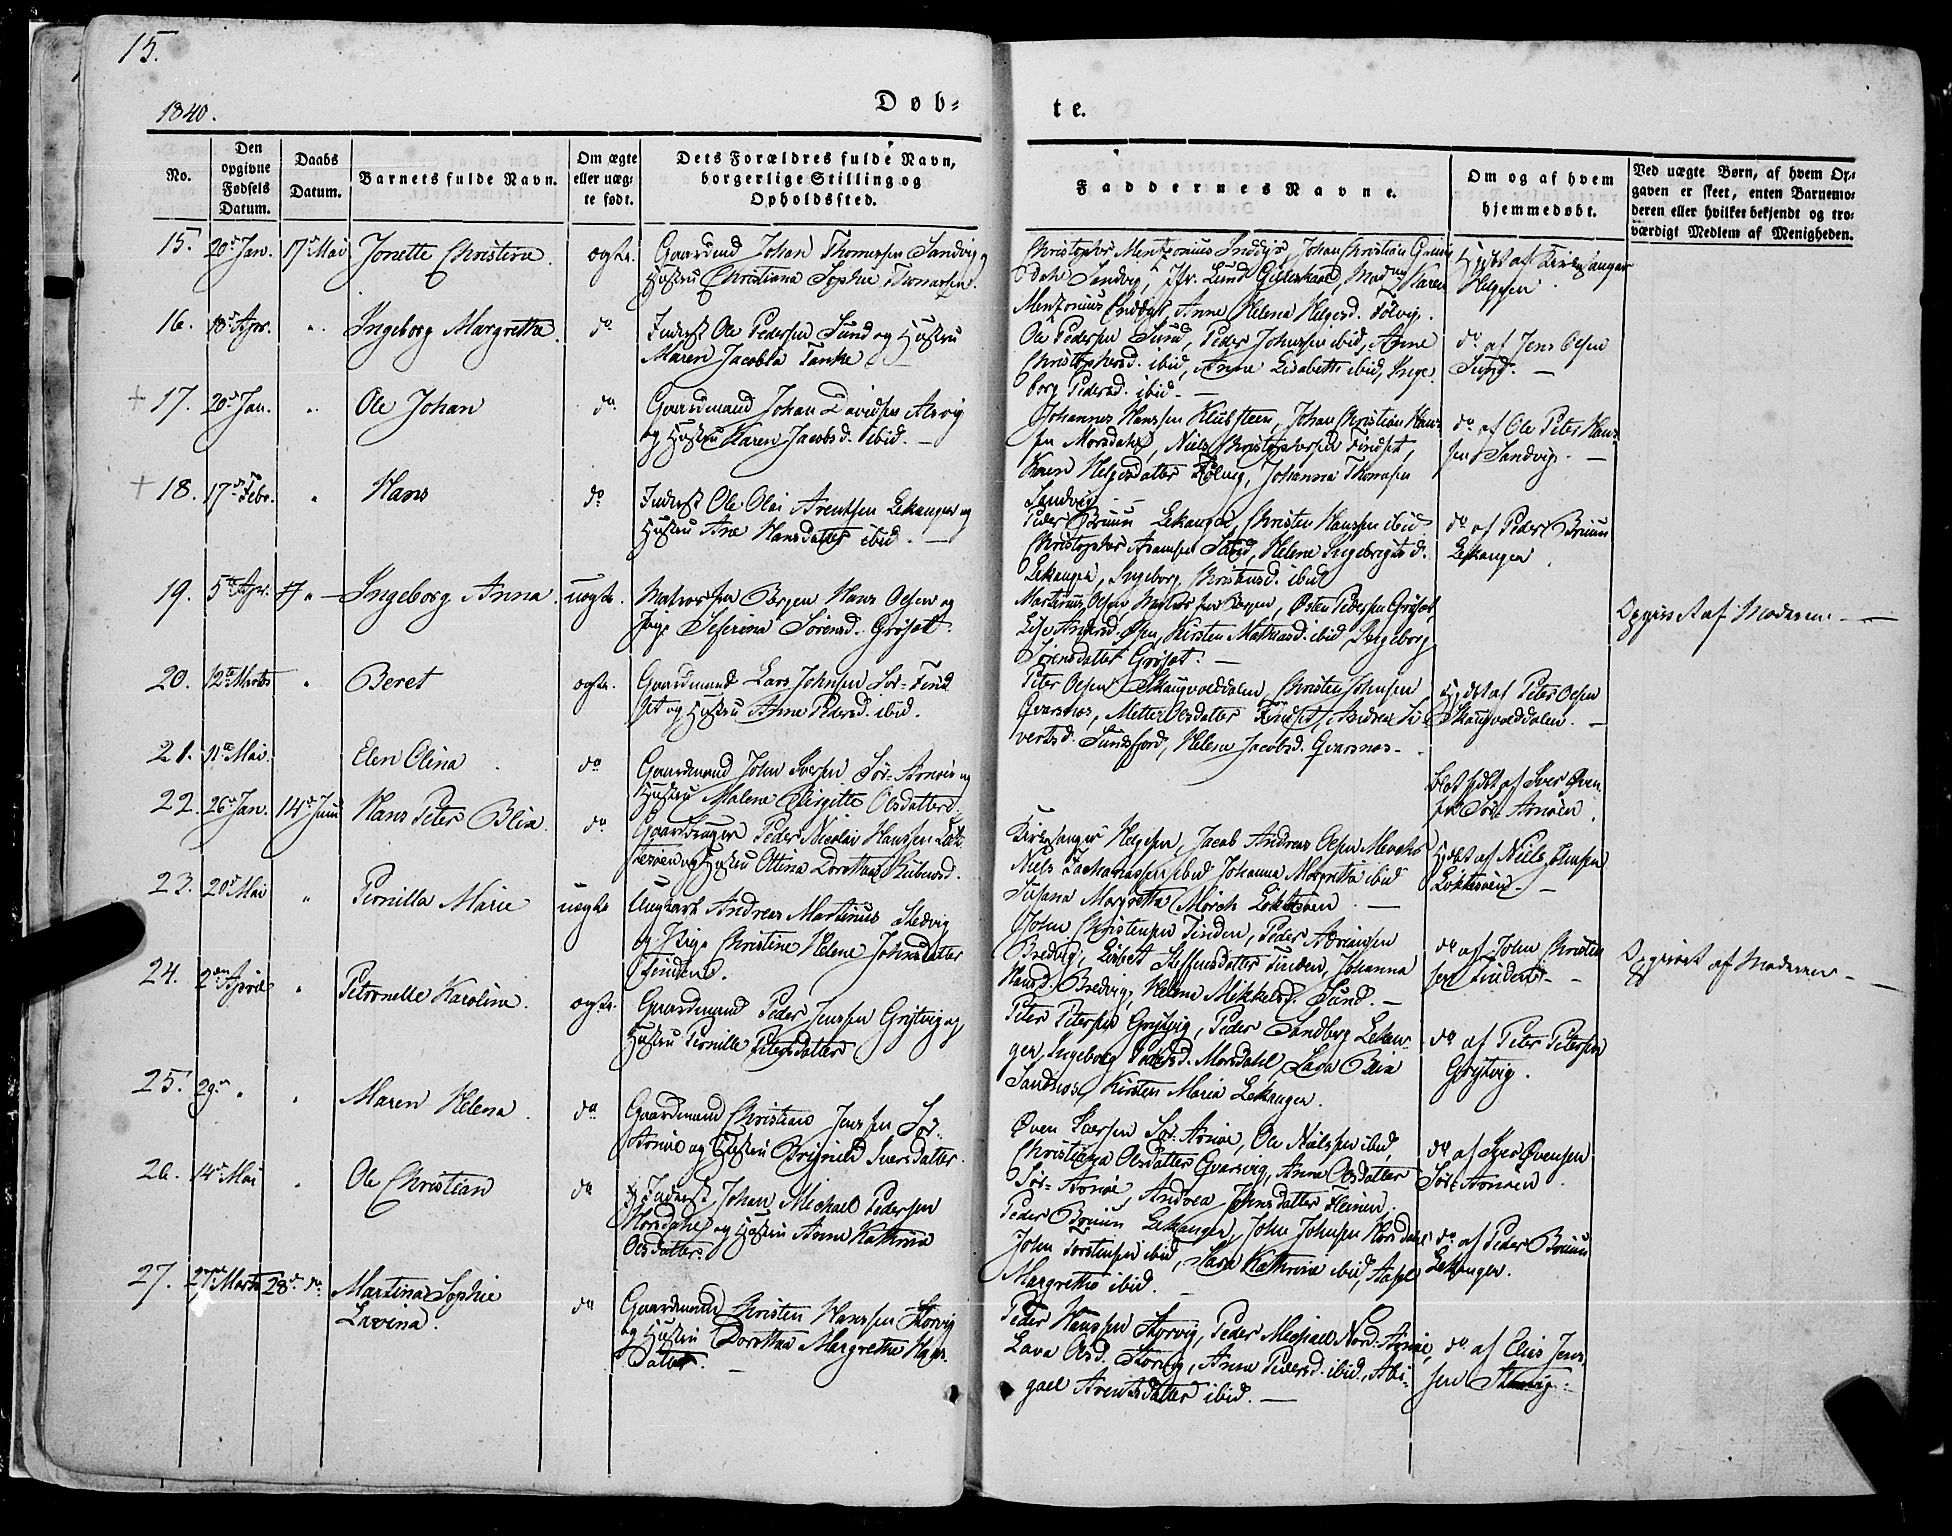 15.
1840.
Døb-
te.
No.
Den opgivne Fødsels Datum.
Daabs Datum.
Barnets fulde Navn.
Om ægte eller uægte født.
Dets Forældres fulde Navn, borgerlige Stilling og Opholdssted.
Faddernes Navne.
Om og af hvem hjemmedøbt.
Ved uægte Børn, af hvem Opgaven er skeet, enten Barnemoderen eller hvilket bekjendt og troværdigt Medlem af Menigheden.
15. 20de Jan. 17de Mai Jonette Christine. ægte. Gaardmd Johan Thomassen Sandvig og
Hustru Christiana Sophie Thomassen.
Johan Christian
Sandvig, Lund Karen
Anne Helena Helgesd.
Hjdøbt af Kirkesanger
Helgesen.
16. 18de Apr. " Ingeborg Margrethe. do Inderst Ole Pedersen Sund og Hustru
Maren Jacobea Tanke
Ole Pedersen Sund, Peder Johnsen ibid, Anne
Christophersd. ibid, Anne Lisabeth ibid, Inge-
borg Pedersd. ibid. —
do af Jens Olsen
Sund. —
+ 17. 20de Jan. " Ole Johan do Gaardmand Johan Davidsen Arvig
og Hustru Karen Jacobsd. ibid. —
Johannes Hanssen Klubsteen, Johan Christian Han-
sen Morsdahl, Niels Christophersen Findset,
Karen Helgesdatter Johanna Thomasen
Sandvig
do af Ole Peter Han-
sen Sandvig. —
+ 18. 17de Febr. " Hans do Inderst Ole Olai Arentsen Lekanger og
Hustru Ane Hansdatter ibid. —
Peder Bruun Lekanger, Christen Hanssen ibid
Christopher Sund, Helene Ingebrigtsd.
Lekanger, Ingeborg Christensd. ibid
do af Peder Bruun
Lekanger.
19. 5te Apr. " Ingeborg Anna. uægte. Matros fra Bergen Hans Olsen og
Pige Seserina Sørensd. Grøset.
Martinus Olsen Matros fra Bergen, Østen Pedersen Grøset,
Lise Andersd. Kirsten Mathiasd. ibid Ingeborg
Sørensdatter Grøset. —
Opgivet af Moderen. —
20. 12te Marts " Beret ægte. Gaardmand Lars Johnsen Sør-Find-
set og Hustru Anne Pedersd. ibid.
Peter Olsen Skaugvolddalen, Christen Johnsen
Qvarsnes, Mette Olsdatter Findset, Andrea Si-
vertsd. Sundsfjord, Helena Jacobsd. Qvarsnes.
Hjdøbt af Peter Olsen
Skaugvolddalen. —
21. 11te Mai. Elen Olina. do Gaardmand John Iversen Sør-Arnøe og
Hustru Malene Birgitte Olsdatter.
blot hjdøbt af Iver Øven-
sen Sør Arnøen.
22. 26de Jan. 14de Juni Hans Peter Blix. do Gaardbruger Peder Nicolai Hanssen Løk-
tesøen og Hustru Ottina Dorothea Rubensd.
Kirkesanger Helgesen, Jacob Andreas Olsen
Niels Zachariassen ibid Johanna Margretha ibid
Susana Margretha Mørch Løktesøen —
Hjdøbt af Niels Johnsen
Løktesøen. —
23. 20de Mai " Pernilla Marie uægte Ungkarl Andreas Martinus Skedvig
og Pige Christine Helene Johnsdatter
Finden.
John Christensen Tinden, Peder Adriansen
Bredvig, Lisbet Steffensdatter Tinden, Johanna
Hansd. Bredvig, Helene Mikkelsd. Sund. —
do af John Christen-
sen Tinden. —
Opgivet af Moderen —
24. 2den April " Petronelle Karoline. ægte. Gaardmand Peder Jenssen Grytvig og
Hustru Pernille Petersdatter
Peter Petersen Grytvig, Peder Sandberg Lekan-
ger, Ingeborg Pedersd. Morsdahl, Lava Blix
Sandnes, Kirsten Maria Lekanger.
do af Peter Petersen
Grytvig.
25. 29de " " Maren Helena. do Gaardmand Christian Jenssen Sør-
Arnøe og Hustru Iversdatter.
Øven Iversen Sør-Arnøe, Ole Nielssen ibid,
Christiana Olsdatter Qvarsvig, Anne Olsdatter
Sør-Arnøe, Andrea Jensdatter
do af Iver Øvensen
Sør-Arnøen.
26. 14de Mai " Ole Christian do Inderst Johan Michael Pedersen
Morsdahl og Hustru Anne Kathrine
Olsdatter.
Peder Bruun Lekanger, John Johnsen Morsdahl
John Torstensen ibid, Kathrine ibid,
Margrethe ibid.
do af Peder Bruun
Lekanger.
27. 27de Marts 28de do. Martina Sophie
Lavina. do Gaardmand Christen Hanssen Storvig
og Hustru Dorothea Margrethe Hans-
datter. —
Peder Hanssen Storvig, Peder Michael Nord-Arnøe,
Lava Olsd. Storvig, Anne Pedersd. ibid, Abi-
gael Arentsdatter ibid. —
do af Elias Jens-
sen Storvig.